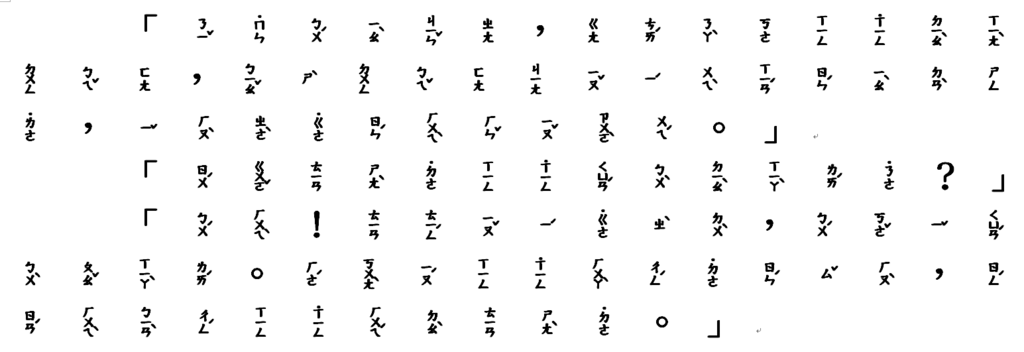 「ㄋㄧˇ ˙ㄇㄣ ㄅㄨˊ ㄧㄠˋ ㄐㄧㄣˇ ㄓㄤ，ㄍㄤ ㄘㄞˊ ㄋㄚˋ ㄎㄜ ㄒㄧㄥ ˙ㄒㄧㄥ ㄉㄧㄠˋ ㄒㄧㄤˋ
ㄉㄨㄥ ㄅㄟˇ ㄈㄤ，ㄅㄧㄠˇ ㄕˋ ㄉㄨㄥ ㄅㄟˇ ㄈㄤ ㄐㄧㄤ ㄧㄡˇ ㄧ ㄨㄟˋ ㄒㄧㄢˊ ㄖㄣˊ ㄧㄠˋ ㄉㄢˋ ㄕㄥ
˙ㄌㄜ，ㄧˇ ㄏㄡˋ ㄓㄜˋ ˙ㄍㄜ ㄖㄣˊ ㄏㄨㄟˋ ㄏㄣˇ ㄧㄡˇ ㄗㄨㄛˋ ㄨㄟˊ。」
「ㄖㄨˊ ㄍㄨㄛˇ ㄊㄧㄢ ㄕㄤˋ ˙ㄉㄜ ㄒㄧㄥ ˙ㄒㄧㄥ ㄑㄩㄢˊ ㄅㄨˋ ㄉㄧㄠˋ ㄒㄧㄚˋ ㄌㄞˊ ˙ㄋㄜ？」
「ㄅㄨˊ ㄏㄨㄟˋ！ㄊㄧㄢ ㄊㄧㄥˊ ㄧㄡˇ ㄧ ˙ㄍㄜ ㄓˋ ㄉㄨˋ，ㄅㄨˋ ㄎㄜˇ ㄧˇ ㄑㄩㄢˊ
ㄅㄨˋ ㄆㄠˇ ㄒㄧㄚˋ ㄌㄞˊ。ㄏㄜˊ ㄎㄨㄤˋ ㄧㄡˊ ㄒㄧㄥ ˙ㄒㄧㄥ ㄏㄨㄚˋ ㄔㄥˊ ˙ㄉㄜ ㄖㄣˊ ㄙˇ ㄏㄡˋ，ㄖㄥˊ
ㄖㄢˊ ㄏㄨㄟˋ ㄅㄧㄢˋ ㄔㄥˊ ㄒㄧㄥ ˙ㄒㄧㄥ ㄏㄨㄟˊ ㄉㄠˋ ㄊㄧㄢ ㄕㄤˋ ˙ㄉㄜ。」